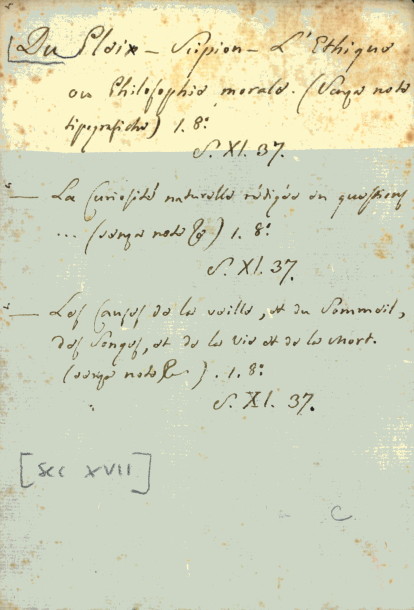 Du Pleix - Scipion - L'Ethique
ou Philosophie morale. (Senza note
tipografiche) 1. 8°
S. XI. 37.
— La Curiosité naturelle rédigée en questions
... (senza note) 1. 8°
S. XI. 37.
— Les Causes de la veille, et du Sommeil,
des Songes, et de la vie et de la mort.
(senza note). 1. 8°
S. XI. 37.
[sec XVII]
C